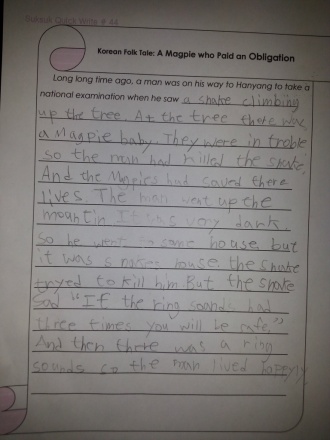 Subject Quick Write # 44
Korean Folk Tale: A Magpie who Paid an Obligation
Long long time ago, a man was on his way to Hanyang to take a
national examination when he saw a snake climbing
up the tree. At the tree there was
a Magpie baby. They were in troble
so the man had killed the snake.
And the Magpies had saved there
lives. The man went up the
mountin It was very dark.
So he went to some house but
it was snakes house. the snake
tryed to kill him. But the snake
Sad "If the ring sounds had
three times you will be safe."
And then there was a ring
sounds so the man lived happyly.